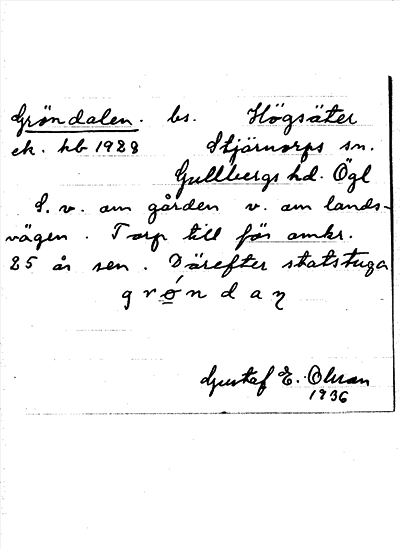 Gröndalen. bs. Högsäter
ek. hb 1928 Stjärnorps sn.
Gullbergs hd. Ögl
S. v. om gården v. om lands-
vägen. Torp till för omkr.
25 år sen. Därefter statstuga
grǿndaṇ
Gustaf E. Olsson
1936